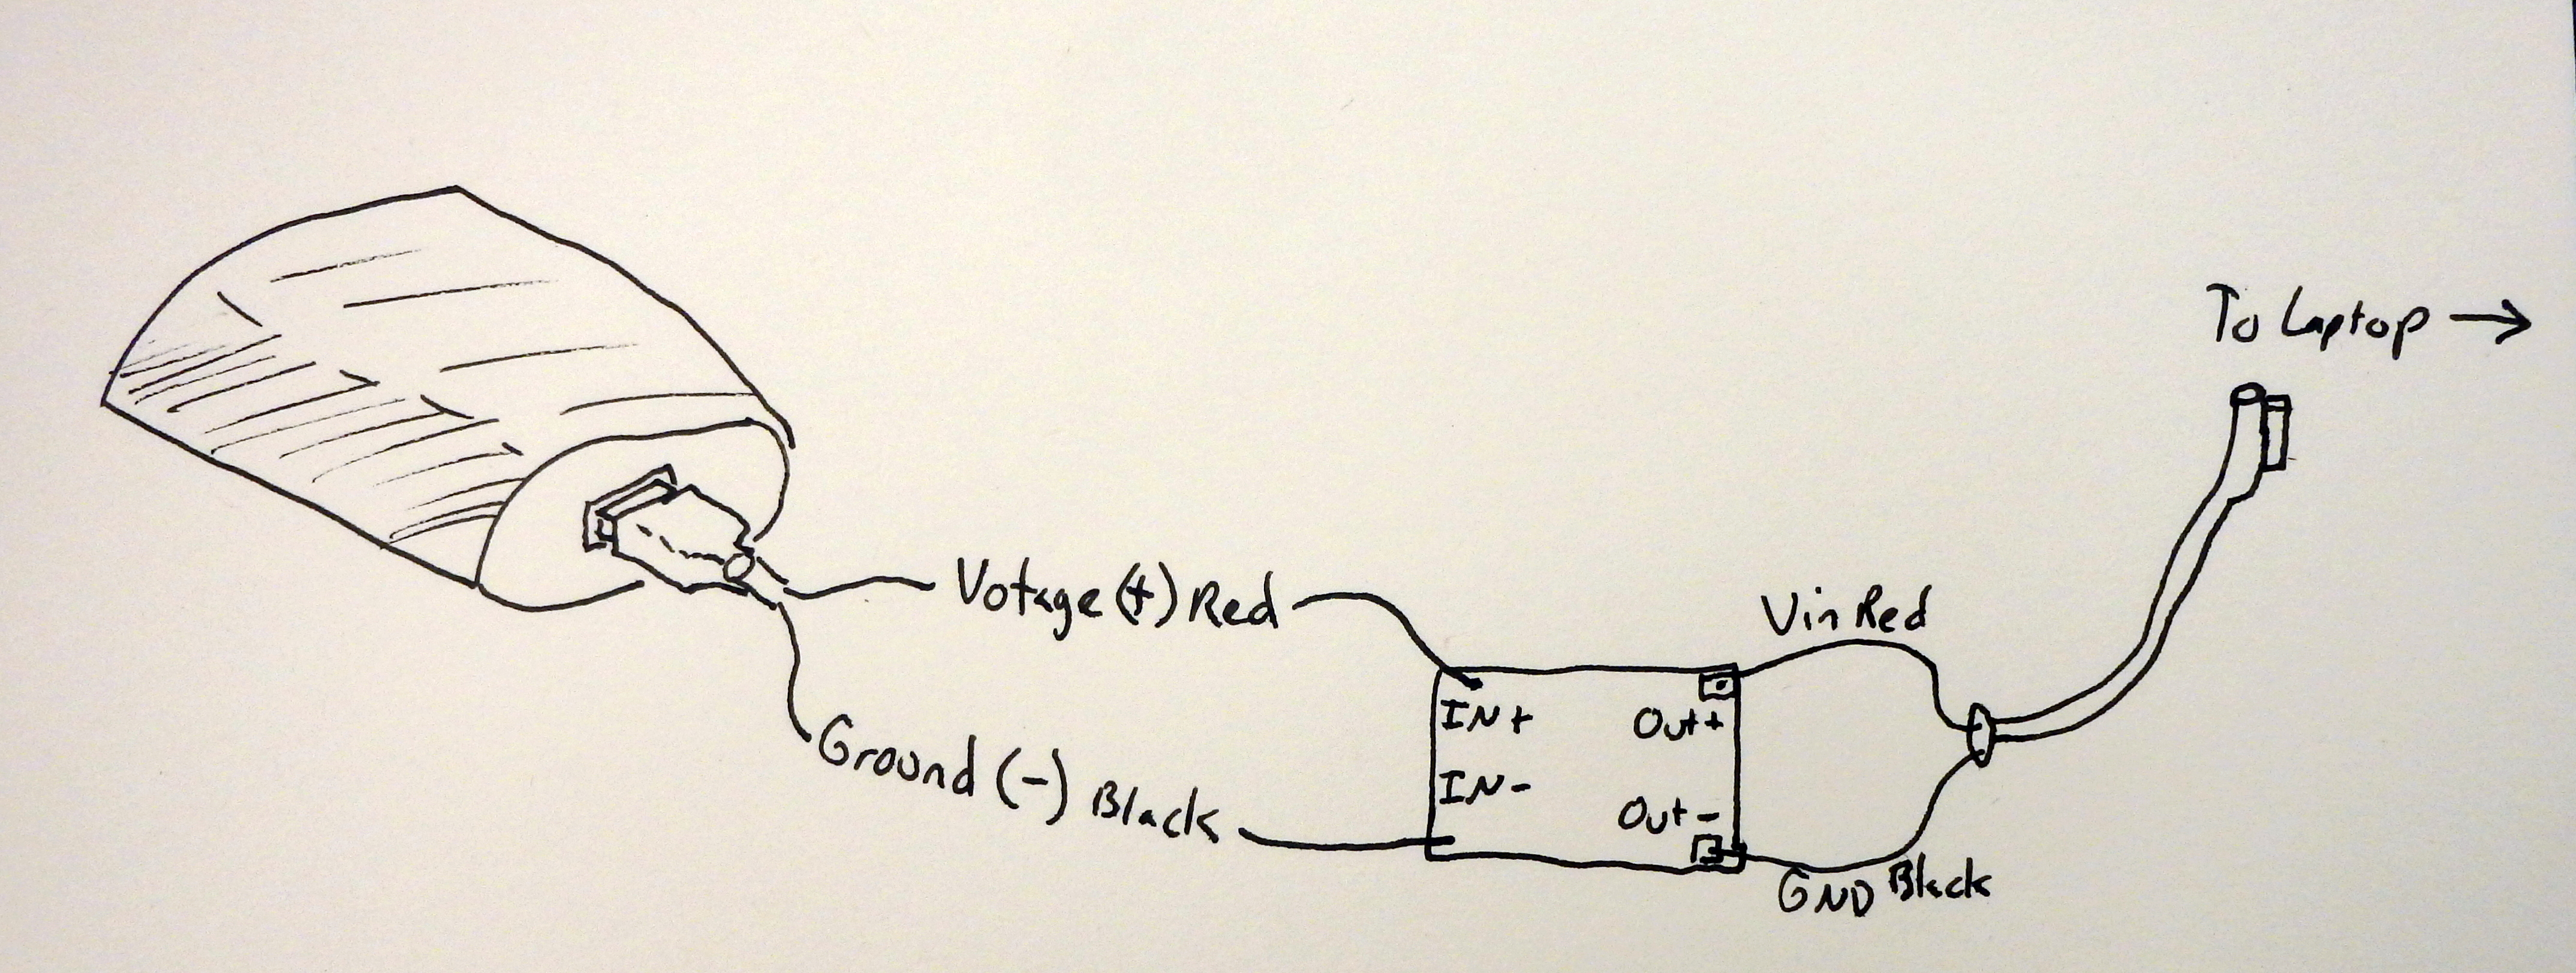 To Laptop →
Votage (+) Red
Vin Red
IN+
Out+
Ground (-) Black
IN-
Out-
GND Black